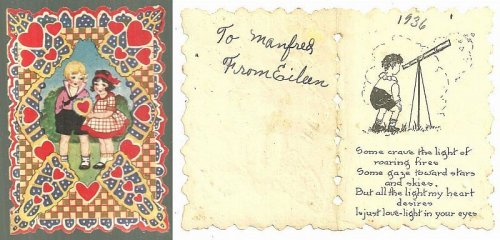 To Manfred
From Eileen
1936
Some crave the light of
roaring fires
Some gaze toward stars
and skies.
But all the light my heart
desires
Is just love-light in your eyes